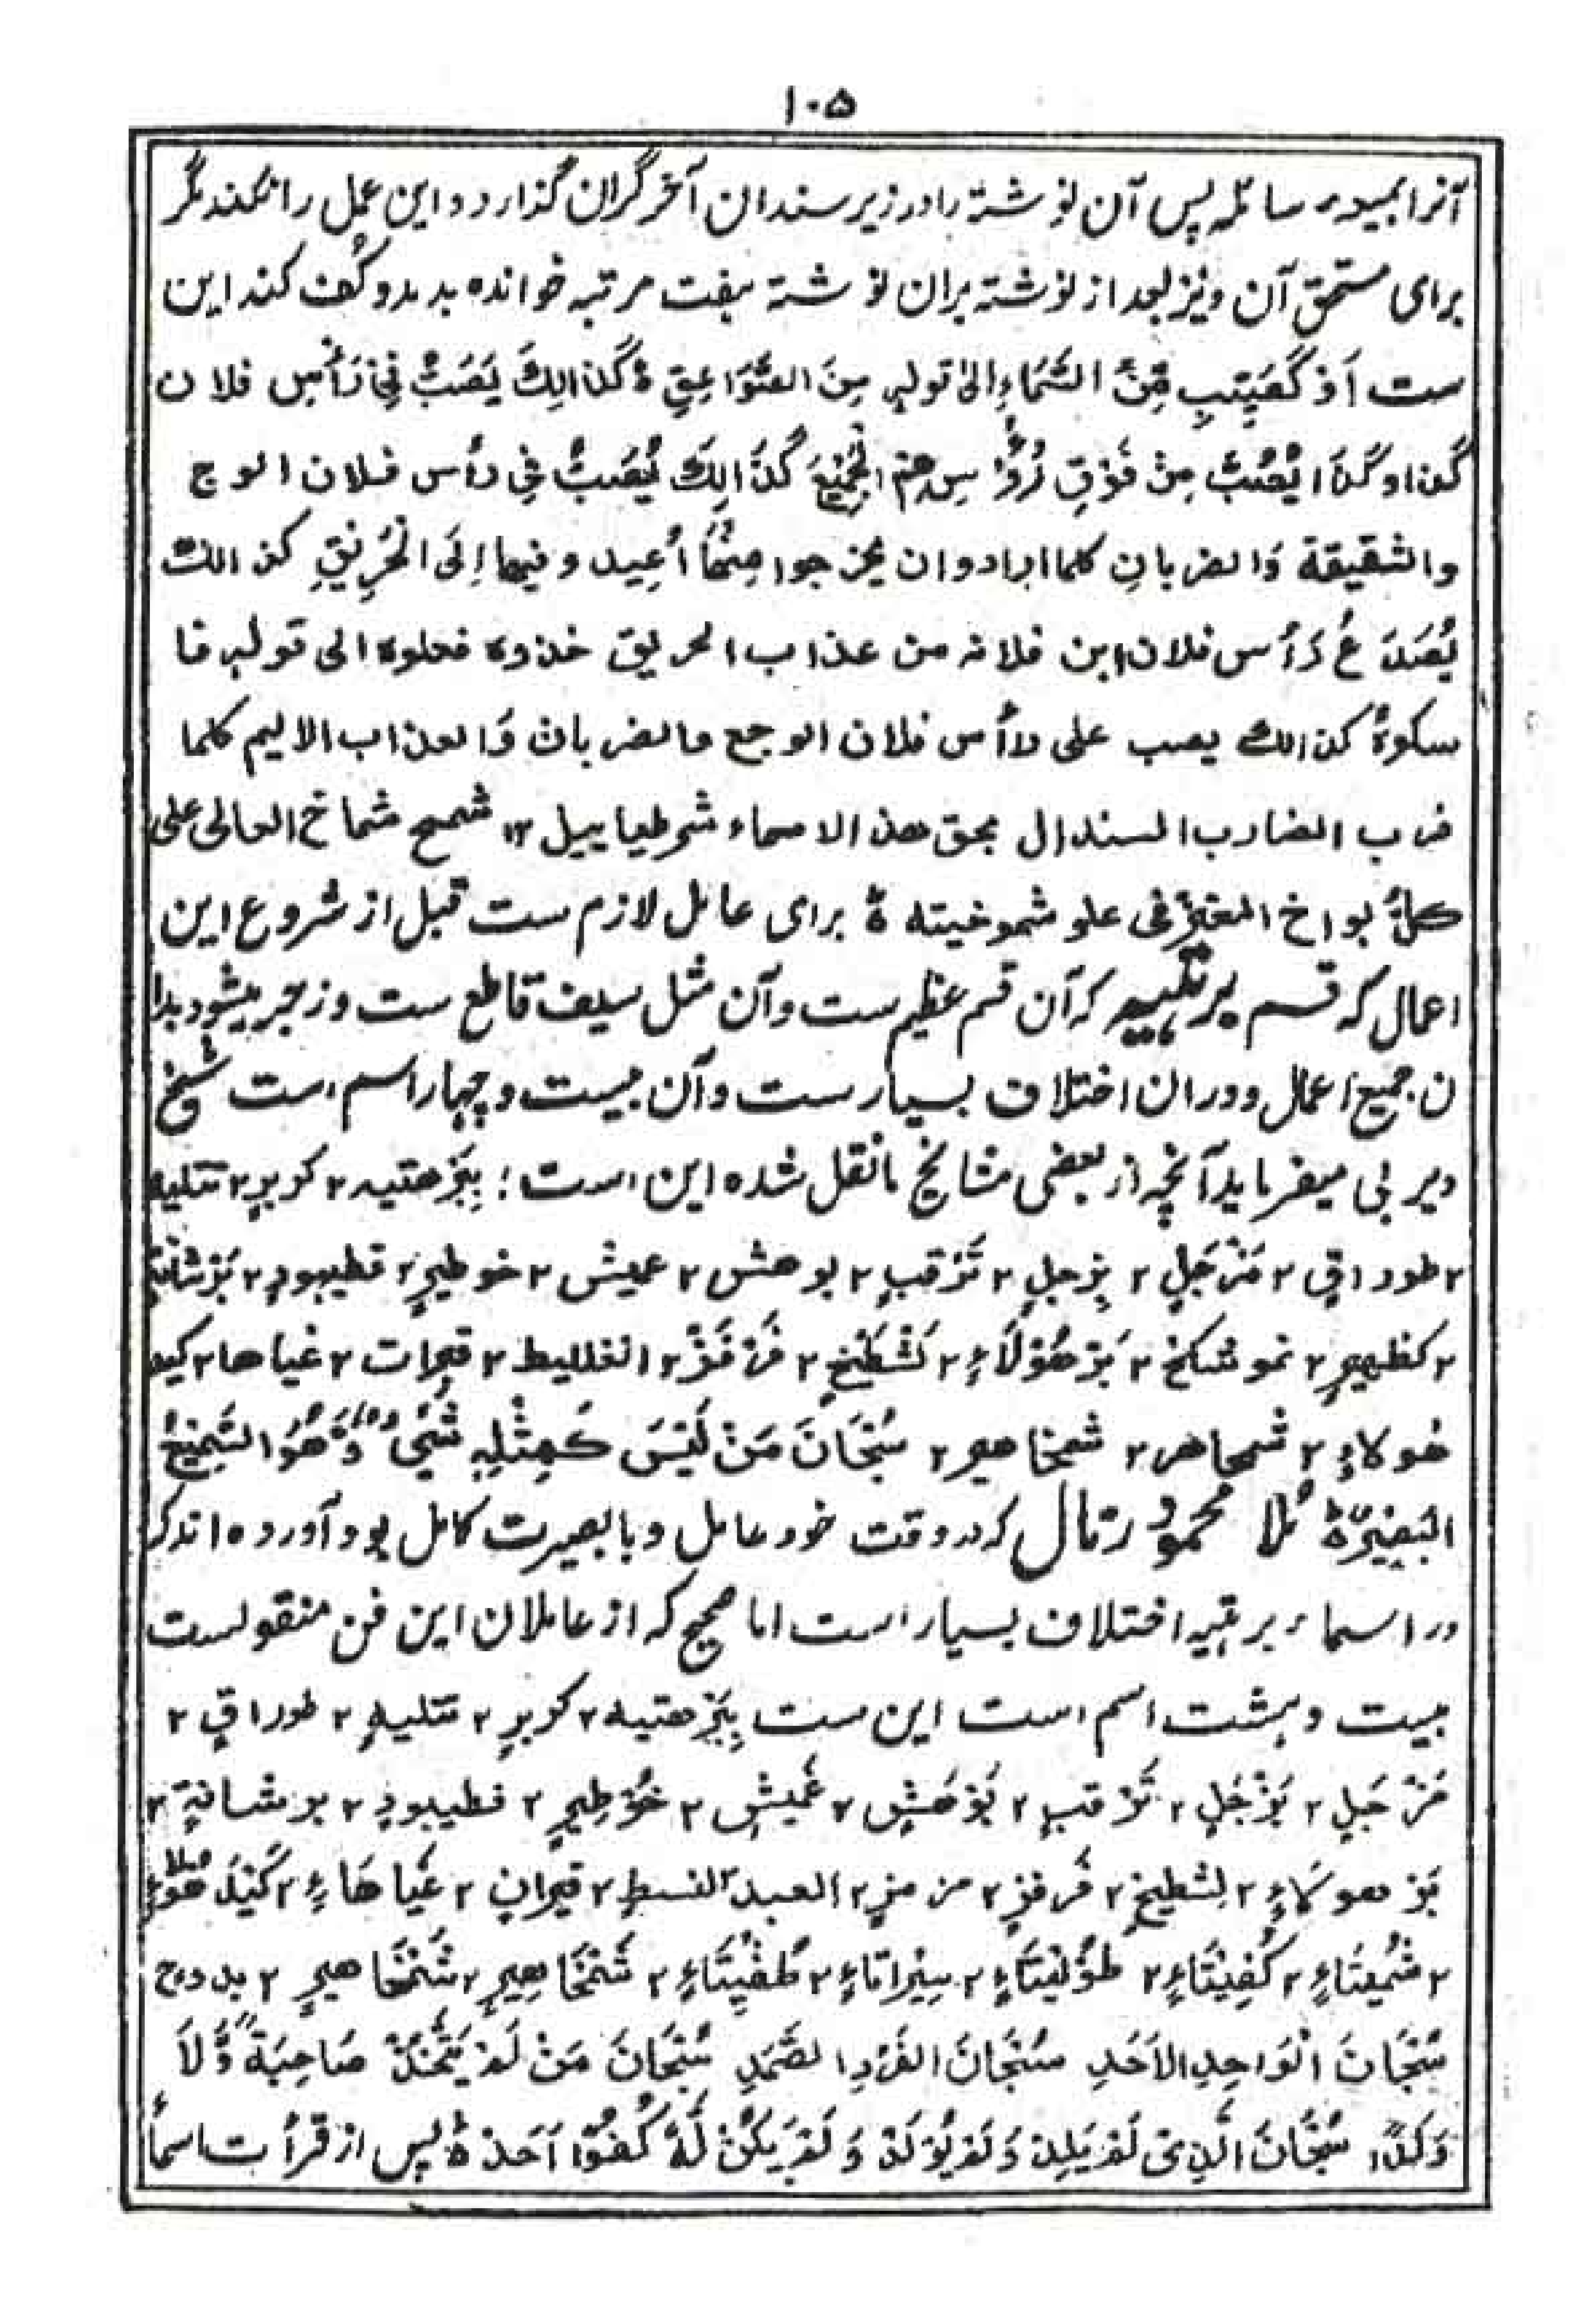 ۱۰۵
آنرا بمیعه سائله پس آن نوشته را در زیر سندان آخر گران گذارد و این عمل را نکند مگر
برای مستحق آن و نیز بعد از نوشته بران نوشته هفت مرتبه خوانده بدمد و گفت کند این
ست اَوْ كَصَيِّبٍ مِّنَ السَّمَاءِ اِلیٰ قولہٖ مِنَ الصَّوَاعِقِ ۃ كَذَالِكَ يَصَبُّ فِیْ رَأْسِ فلان
كَذَا وَكَذَا يُصَبُّ مِنْ فَوْقِ رُؤُسِهِمُ الْحَمِيْمُ كَذَالِكَ يُصَبُّ فِی رأس فلان الوج
والشقيقة وَالضربانِ كلما ارادوان يخرجوا مِنْهَا اُعِيدوفيها اِلَى الْحَرِيْقِ كذالك
يُصَدَعُ رَأس فلان ابن فلانہ من عذاب الحريق خذوه فعلوه الی قولہ فا
سكوهٗ كذالك يصب علی رأس فلان الوجع والضربان وَالعذاب الاليم كلما
ضرب الضارب السندال بحق هذه الاسماء شرطياييل ۱۲ شمیح شماخ العالی علی
كلِّ بواخ المغز فی علو شموخيته ۃ برای عامل لازم ست قبل از شروع این
اعمال که قسم برہتیہ که آن قسم عظیم ست و آن مثل سیف قاطع ست و زجر میشود بدا
ن جمیع اعمال و دران اختلاف بسیار ست و آن بیست و چهار اسم است شیخ
دیربی میفرماید آنچه از بعضی مشائخ ما نقل شده این است؛ بِبَرْهتیہ ۲ کریرٍ ۲ تتلیہ
۲ طوراقٍ ۲ مَزْجَلٍ ۲ بزجلٍ ۲ تَرْقبٍ ۲ برهش ۲ عمیش ۲ خوطیرٍ ۲ قطیبودٍ ۲ بَرْشانۃ
۲ کظهیرٍ ۲ نموشکخ ۲ بَرْهَوْلَاءٍ ۲ لَشْطَیْخٍ ۲ قَزْمَزْ ۲ انغللیط ۲ قبرات ۲ غیاها ۲ کید
هولاءٍ ۲ شمخاهر ۲ شمخاهیر ۲ سُبْحَانَ مَنْ لَيْسَ كَمِثْلِهٖ شَيْءٌ وَّهُوَ السَّمِيْعُ
الْبَصِيْرُ ۃ مُلا محمود رتمال که در وقت خود عامل و بابصیرت کامل بود آورده اند که
در اسماء برہتیہ اختلاف بسیار است اما صحیح که از عاملان این فن منقولست
بیست و هشت اسم است این ست بِبَرْهتیہ ۲ کریرٍ ۲ تتلیہٍ ۲ طوراقٍ ۲
مَزْجَلٍ ۲ بَزْجَلٍ ۲ تَرْقبٍ ۲ بَرْهَشٍ ۲ غَمیشٍ ۲ خَوْطِیرٍ ۲ قطیبودٍ ۲ برشانۃٍ ۲
بَرْهولاءٍ ۲ لشطیخٍ ۲ قرمزٍ ۲ مزمزٍ ۲ العبد النسطٍ ۲ قبراتٍ ۲ غَیَاهَاءٍ ۲ كَيْدَ هُوْلَاءِ
۲ شُمْيتَاءٍ ۲ كُفِيْتَاءٍ ۲ طُوْلِيْتَاءٍ ۲ سِيْرَاتَاءٍ ۲ طُفْيِتَاءٍ ۲ شَمْخَاهِيرٍ ۲ شَمْخَاهيرٍ ۲ بدوح
سُبْحَانَ الْوَاحِدِ الاَحَدِ سُبْحَانَ الفَرْدِ الصَّمَدِ سُبْحَانَ مَنْ لَمْ يَتَّخِذْ صَاحِبَةً وَّلَا
وَلَدًا سُبْحَانَ الَّذِیْ لَمْ يَلِدْ وَلَمْ يُوْلَدْ وَلَمْ يَكُنْ لَّهٗ كُفُوًا اَحَدْ ۃ پس از قرأت اسما